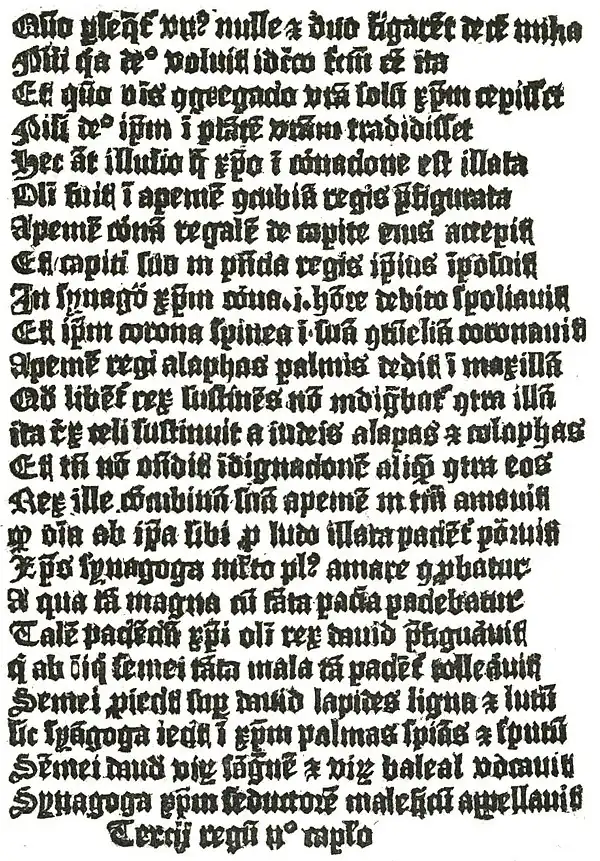 Quō pſeq̄ret̄ vnꝰ mille ⁊ duo fugarēt decē milia
Niſi q̄a deꝰ voluit idc̄o fc̄m ē ita
Et quō vōs ꝯgregacio vr̄a ſolū xp̄m cepiſſet
Niſi deꝰ ip̄m ī ptātē vrām tradidiſſet
Hec āt illuſio q̄ xp̄o ī corōnacione eſt illata
Olī fuit ī apemē ꝯcubīa regis p̄figurata
Apemē corōnā regalē de capite eius accepit
Et capiti ſuo in pn̄cia regis ip̄ius īpoſuit
In ſynagōa xp̄m corōna .i. honōre debito ſpoliauit
Et ip̄m corona ſpinea ī ſuā ꝯtumēliā coronauit
Apemē regi alaphas palmis dedit ī maxillā
Qđ libēt̄ rex ſuſtinēs nō indignābat̄ ꝯtra illā
ita rēx celi ſuſtinuit a iudeis alapas ⁊ colaphas
Et tn̄ nō oſtēdit īdignacionē aliquā ꝯtra eos
Rex ille cōncubinā ſuā apemē in tm̄ amauit
ꝙ oīa ab ip̄a ſibi ꝓ ludo illata pacien̄t̄ portāuit
Xp̄s ſynagoga multo plꝰ amare ꝯprobatur
A qua tā magna cū tāta paciēcia paciebatur
Talē pacienciā xp̄i olī rex dauid p̄figurāuit
q̄ ab iniquo ſemei tāta mala tā pacient̄ tolerāuit
Semei ꝓiecit ſup̄ dauid lapides ligna ⁊ lutū
ſic ſynāgoga iecit ī xp̄m palmas ſpinās ⁊ ſputū
Sēmei dauid virꝝ ſāguinē ⁊ virꝝ belial vocauit
Synagoga xp̄m ſeductorē maleficū appellauit
Tercij regū iiꝰ cap̄lo